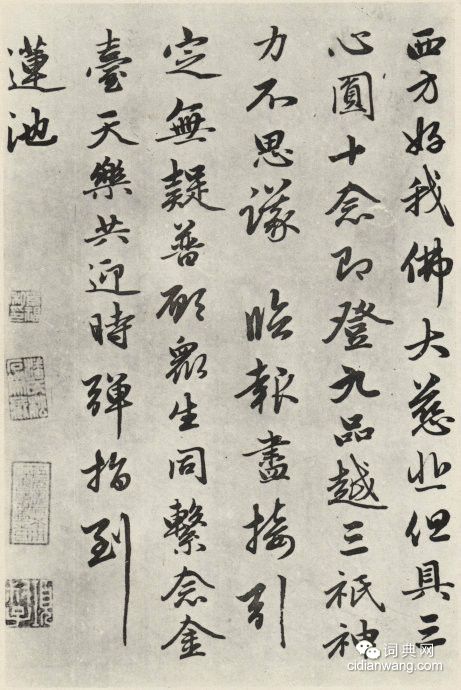 西方好我佛大慈悲但具三
心圓十念即登九品越三祇神
力不思議　臨報盡接引
定無疑普願眾生同繫念金
臺天樂共迎時彈指到
蓮池
词典网
cidianwang.com